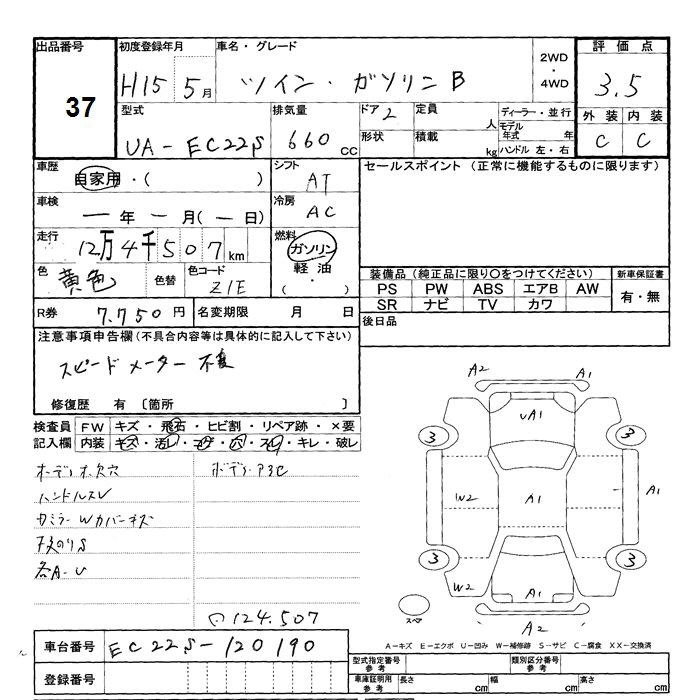 出品番号 初度登録年月 車名・グレード 2WD・4WD 評価点
37 H15 5月 ツイン・ガソリンB 3.5
型式 排気量 ドア 2 定員 人 ディーラー・並行 外装 内装
UA-EC22S 660cc 形状 積載 kg モデル年式 年 C C
ハンドル 左・右
車歴 自家用・( ) シフト AT セールスポイント (正常に機能するものに限ります)
車検 ー年 ー月(ー日) 冷房 AC
走行 12万4千507km 燃料 ガソリン 軽油・( )
色 黄色 色替 色コード Z1E
装備品(純正品に限り○をつけてください) 新車保証書
PS PW ABS エアB AW 有・無
SR ナビ TV カワ
R券 7,750円 名変期限 月 日 後日品
注意事項申告欄(不具合内容等は具体的に記入して下さい)
スピードメーター不良
修復歴 有 〔箇所 〕
検査員 FW キズ・飛石・ヒビ割・リペア跡・×要
記入欄 内装 キズ・汚レ・コゲ・穴・スレ・キレ・破レ
オーディオ欠穴 ボデーP3C
ハンドルスレ
カミラーWカバーキズ
各A-U
124,507
車台番号 EC22S-120190
登録番号
A2 A1
UA1
3 3
W2 A1 A1
3 3
W2 A1
スペア A2
A-キズ E-エクボ U-凹み W-補修跡 S-サビ C-腐食 XX-交換済
型式指定番号 参考 類別区分番号 参考
車庫証明用 参考 長さ cm 幅 cm 高さ cm